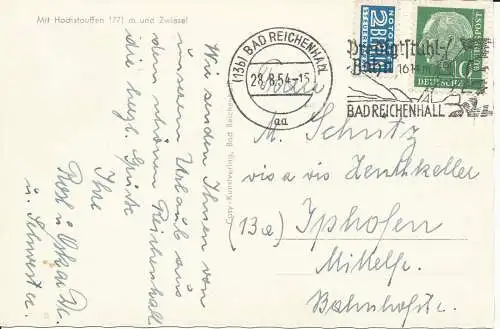 Mit Hochstauffen 1771 m und Zwiesel
Wir senden Ihnen von
unserem Urlaub aus
dem schönen Reichenhall
die herzl. Grüße
Ihre
u. Schwester.
Cosy-Kunstverlag, Bad Reichenhall
(13b) BAD REICHENHALL
28.8.54-15
aa
NOTOPFER
2 BERLIN
STEUERMARKE
DEUTSCHE BUNDESPOST
10
Predigtstuhl-
Bahn
1614 m
BAD REICHENHALL
M. Schütz
vis a vis Zehntkeller
(13a) Iphofen
Mittelfr.
Bahnhofstr.